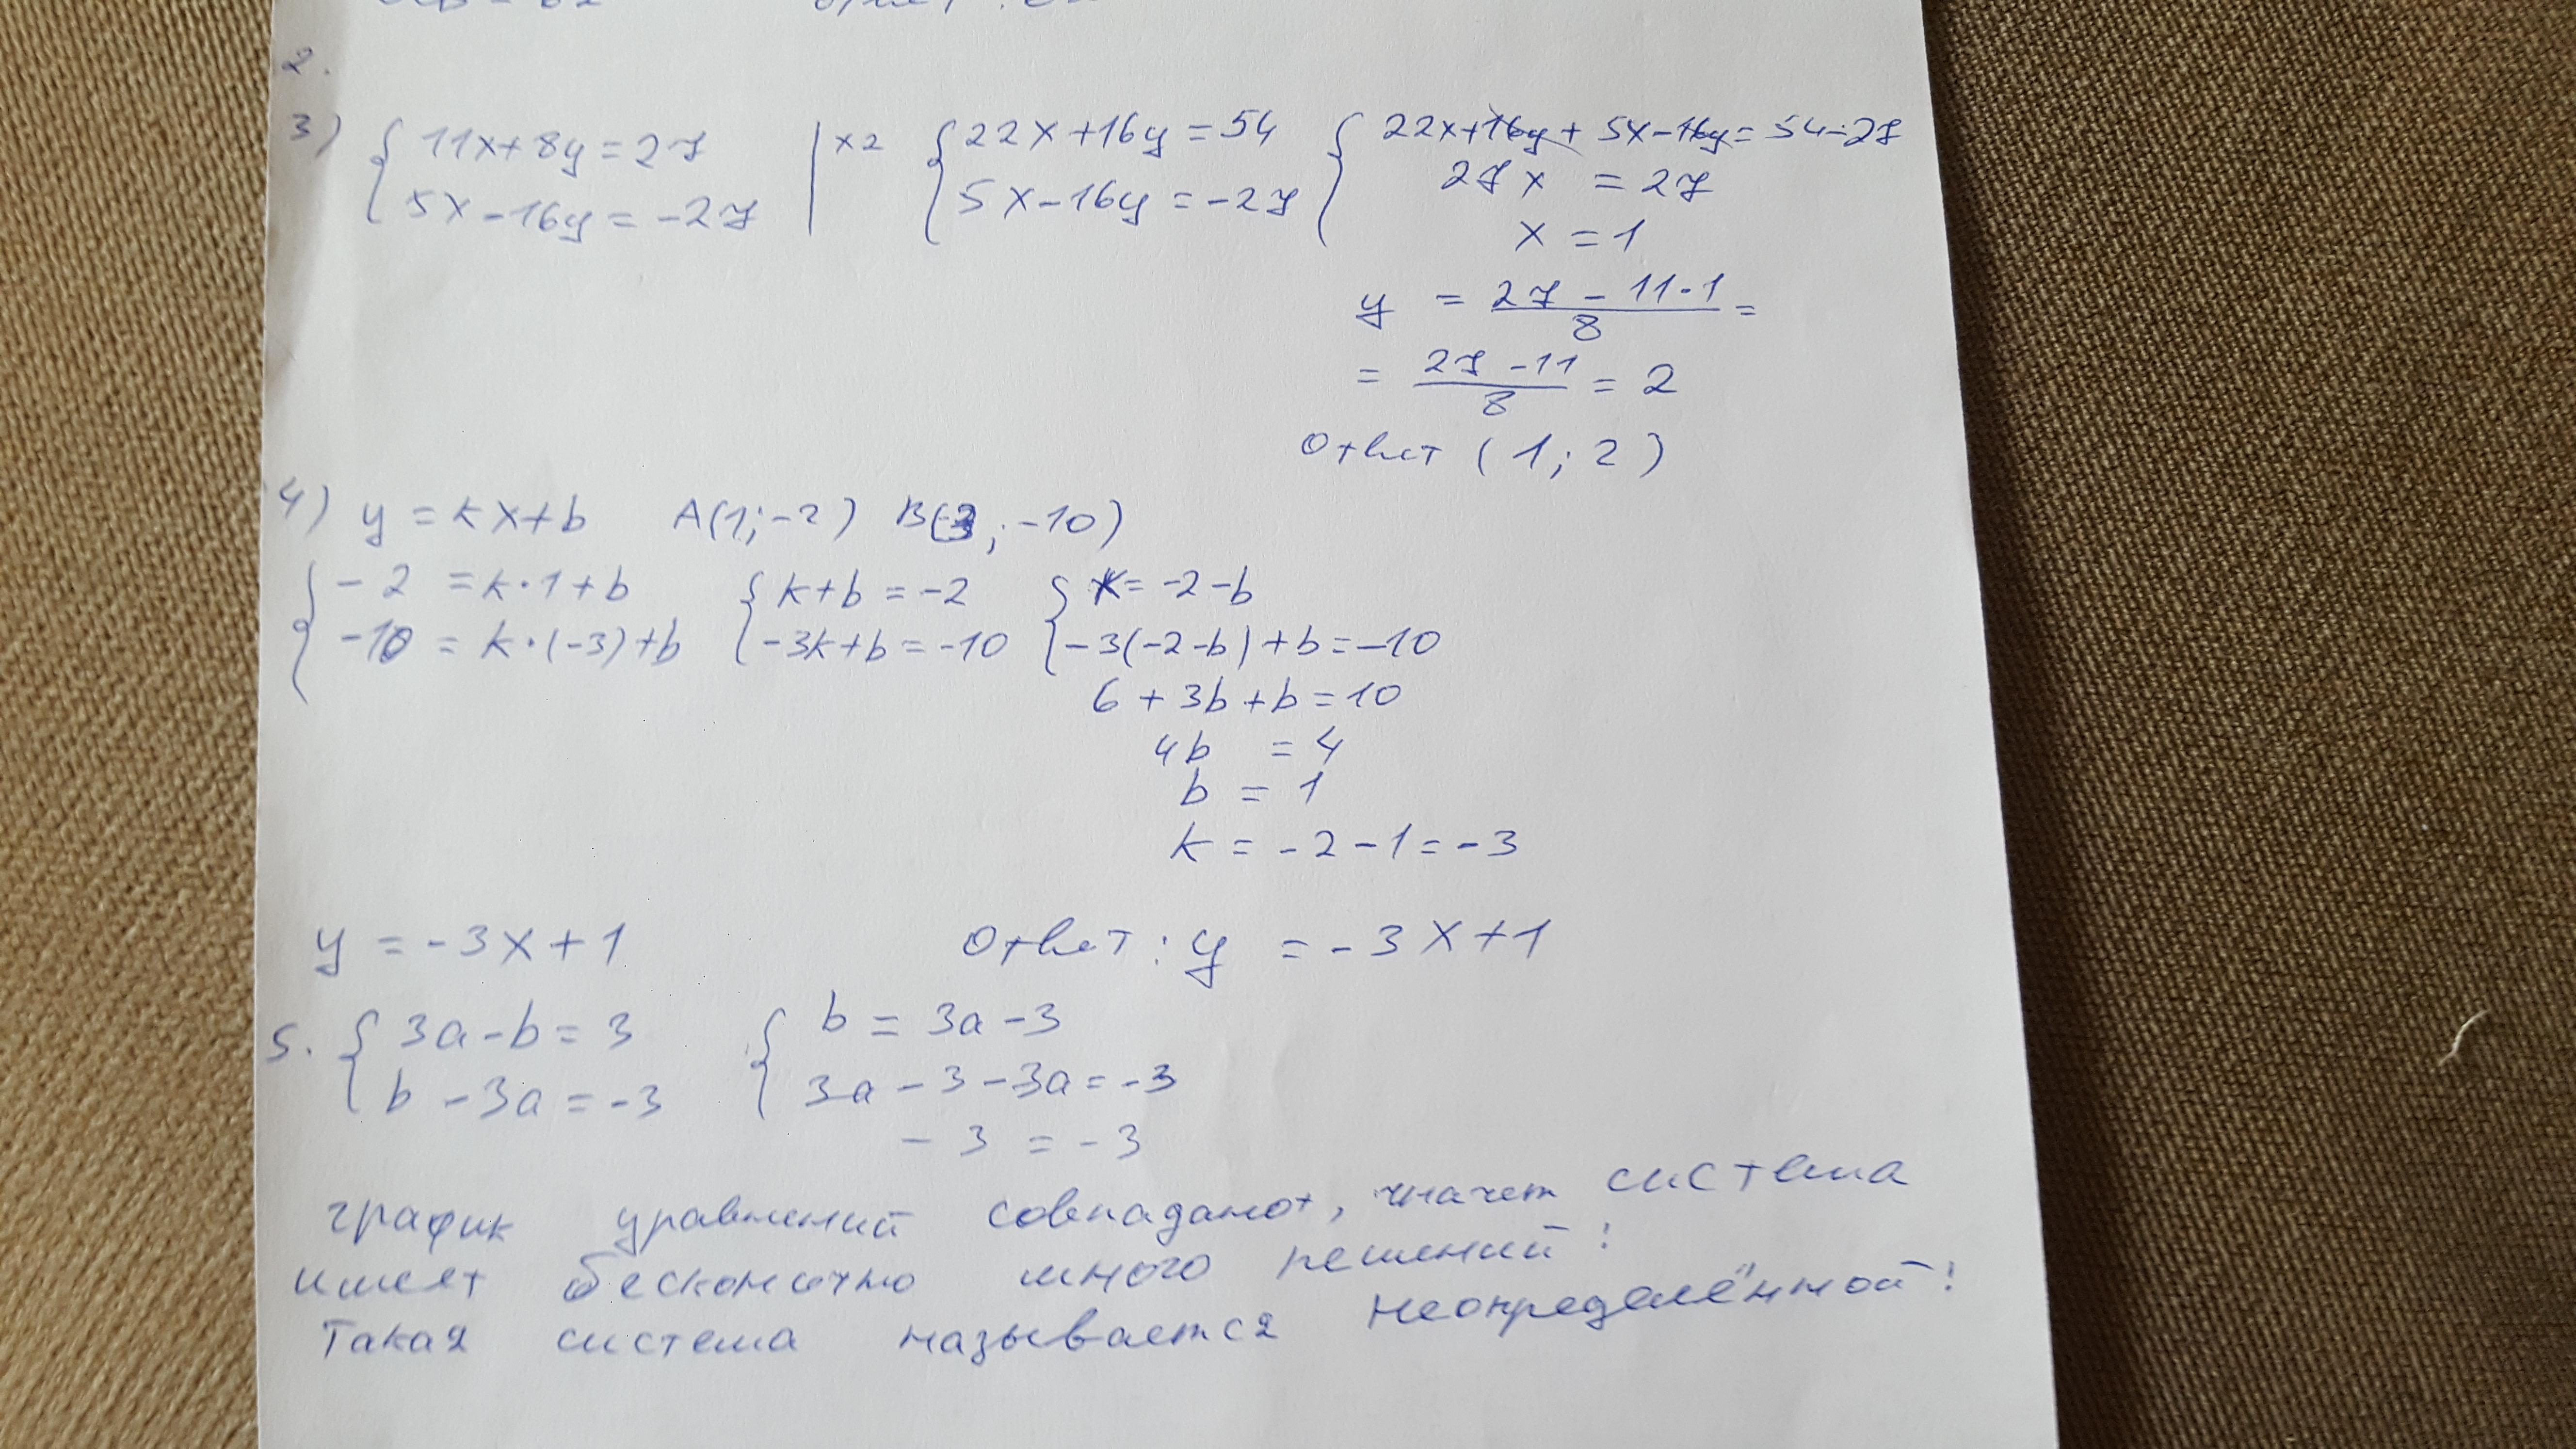 2.
3) { 11x+8y=27 | ×2 { 22x+16y=54 { 22x+16y+5x-16y=54-27
5x-16y=-27 5x-16y=-27 27x = 27
x = 1
y = (27-11·1)/8 =
= (27-11)/8 = 2
Ответ (1; 2)
4) y = kx+b A(1;-2) B( ; -10)
{ -2 = k·1+b { k+b=-2 { k=-2-b
-10 = k·(-3)+b -3k+b=-10 -3(-2-b)+b=-10
6+3b+b=10
4b = 4
b = 1
k = -2-1=-3
y = -3x+1 Ответ: y = -3x+1
5. { 3a-b=3 { b = 3a-3
b-3a=-3 3a-3-3a=-3
-3 = -3
график уравнений совпадают, значет система
имеет бесконечно много решений!
Такая система называется неопределённой!